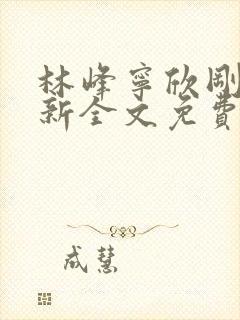 林峰寧欣剛
新全文免費
成慧